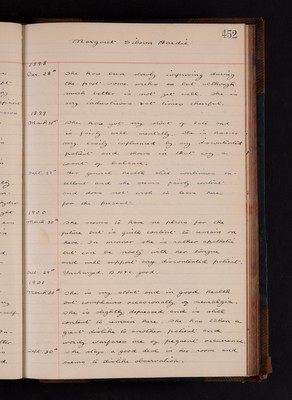 452
Margaret Gibson Hardie
1898
Dec. 28th She has been slowly improving during
the past some weeks so but although
much better is not yet well. She is
very industrious at times cheerful.
1899
March 11th She has got very stout of late and
is fairly well mentally. She is however
very easily influenced by any discontented
patient and shows in that way a
want of balance.
Sept. 21st Her general health still continues ex-
cellent and she seems fairly content
and does not wish to leave here
for the present.
1900
March 30th She seems to have no plans for the
future but is quite content to remain on
here. In manner she is rather apathetic
but can be nasty with her tongue
and will support any discontented patient.
Sept. 29th Unchanged. B.H. &c. good.
1901
March 30th She is very stout and in good health
but complains occasionally of neuralgia.
She is slightly depressed and is still
content to remain here. She has taken a
great dislike to another patient and
wordy warfares are of frequent occurrence.
Sept. 30th She sleeps a good deal in her room and
seems to dislike observation.